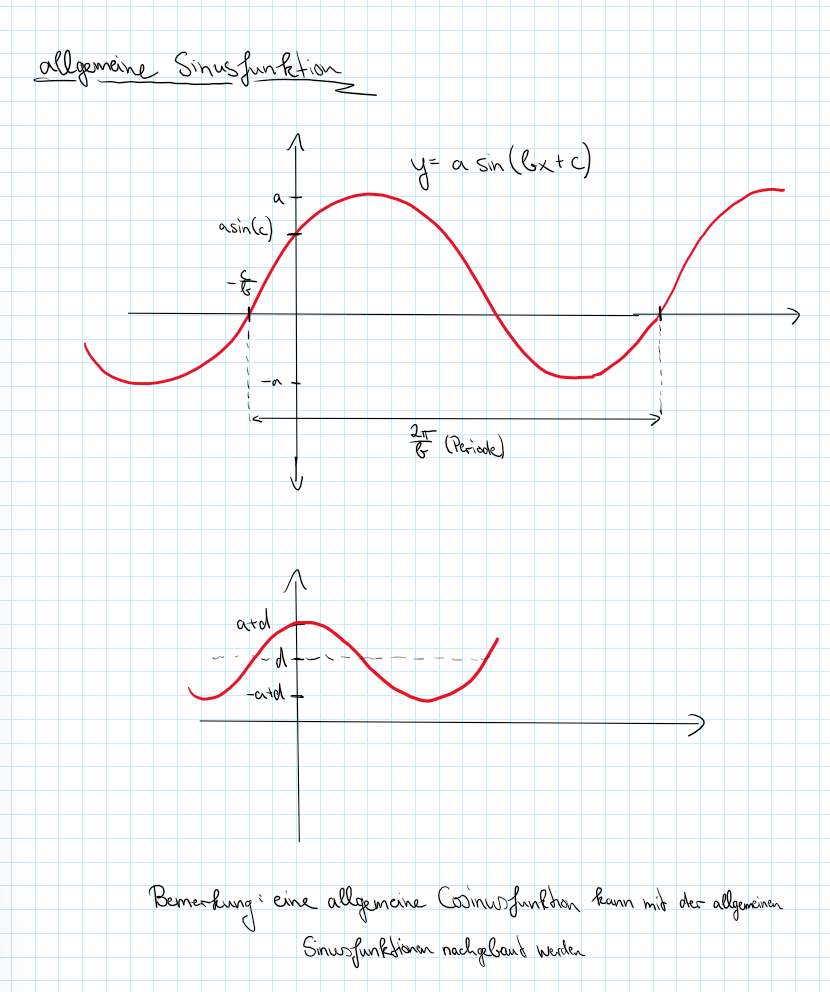 allgemeine Sinusfunktion
y= a sin(bx+c)
a
a sin(c)
-c/b
-a
2π/b (Periode)
a+d
d
-a+d
Bemerkung: eine allgemeine Cosinusfunktion kann mit der allgemeinen
Sinusfunktionen nachgebaut werden